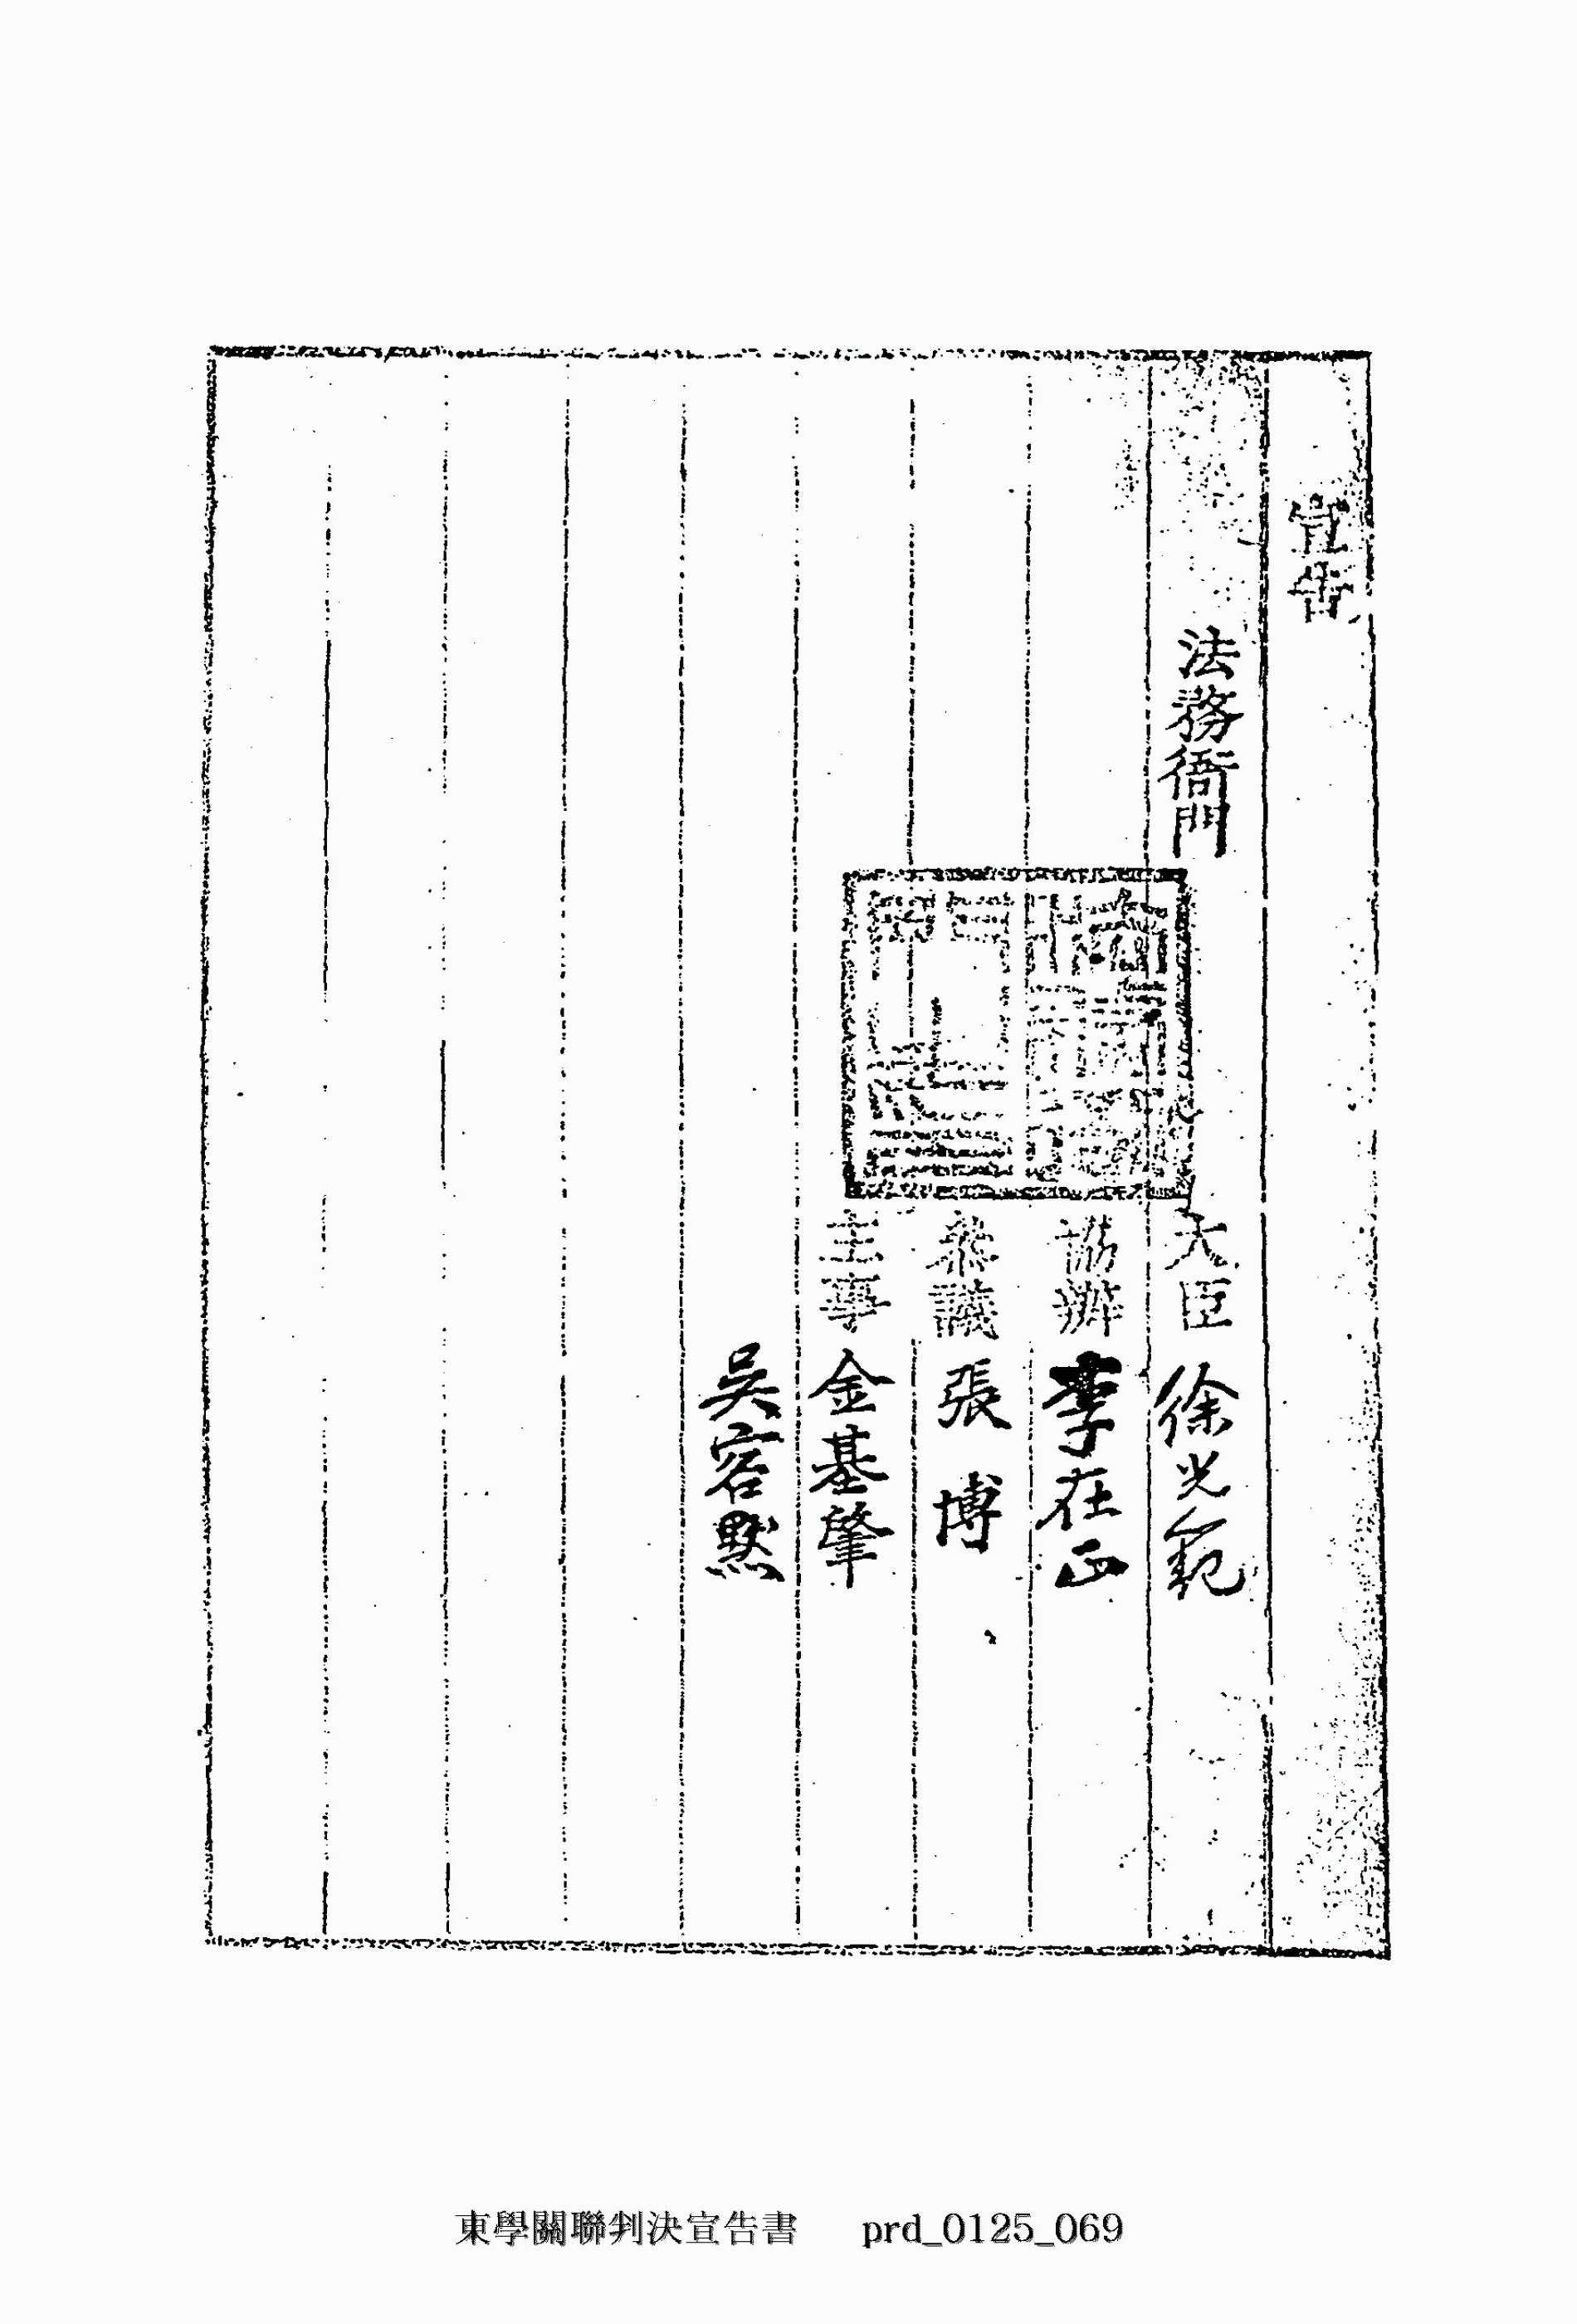 宣告
法務衙門
大臣 徐光範
協辦 李在正
參議 張博
主事 金基肇
吳容黙
東學關聯判決宣告書 prd_0125_069